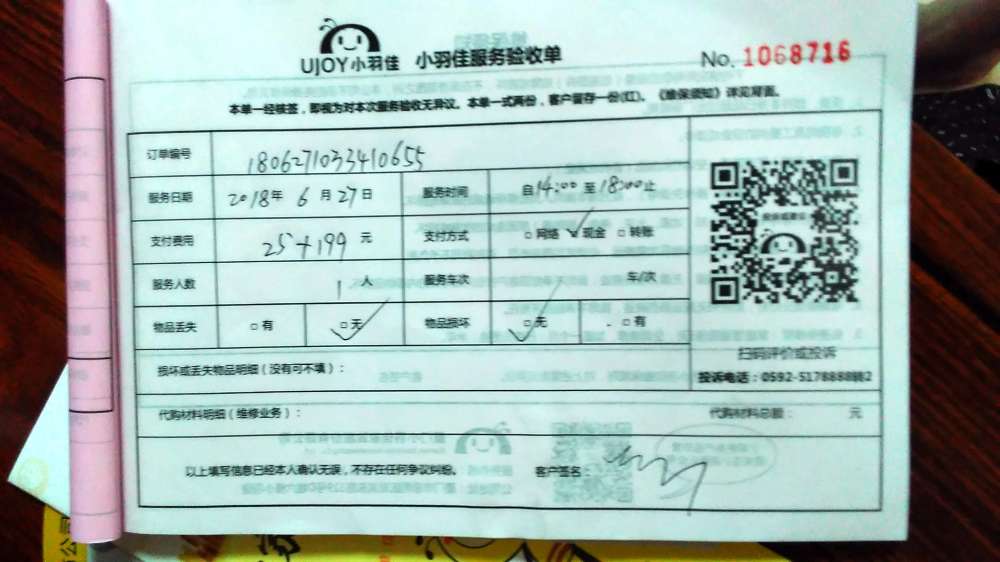 UJOY小羽佳 小羽佳服务验收单 No. 1068716
本单一经核签，即视为对本次服务验收无异议。本单一式两份，客户留存一份(红)。《维保须知》详见背面。
订单编号 180627103341065​5
服务日期 2018年 6月 27日 服务时间 自14:00 至 18:00止
支付费用 25+199 元 支付方式 □网络 □现金 □转账
服务人数 1 人 服务车次 车/次
物品丢失 □有 □无 物品损坏 □无 □有
扫码评价或投诉
损坏或丢失物品明细（没有可不填）：
投诉电话：0592-5178888转2
代购材料明细（维修业务）： 代购材料总额： 元
以上填写信息已经本人确认无误，不存在任何争议纠纷。 客户签名：